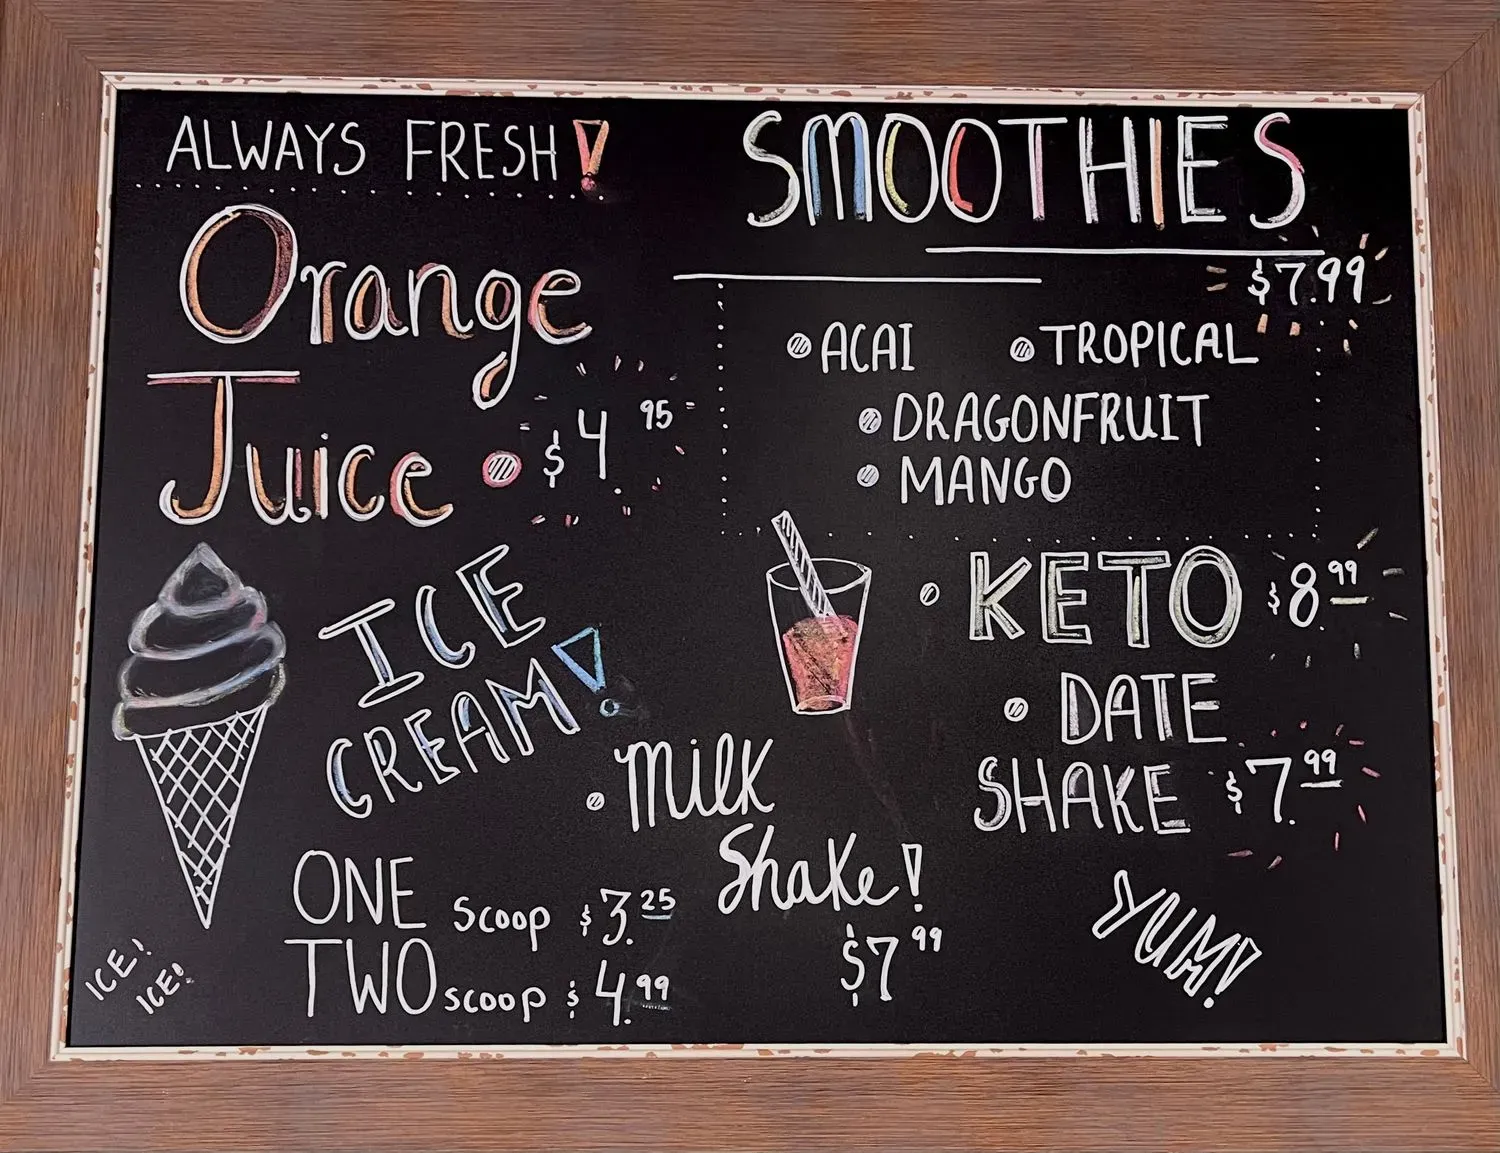 ALWAYS FRESH!
Orange
Juice • $4.95
SMOOTHIES
$7.99
• ACAI • TROPICAL
• DRAGONFRUIT
• MANGO
• KETO $8.99
• DATE
SHAKE $7.99
ICE
CREAM!
• Milk
Shake!
$7.99
ONE Scoop $3.25
TWO scoop $4.99
ICE!
ICE!
YUM!